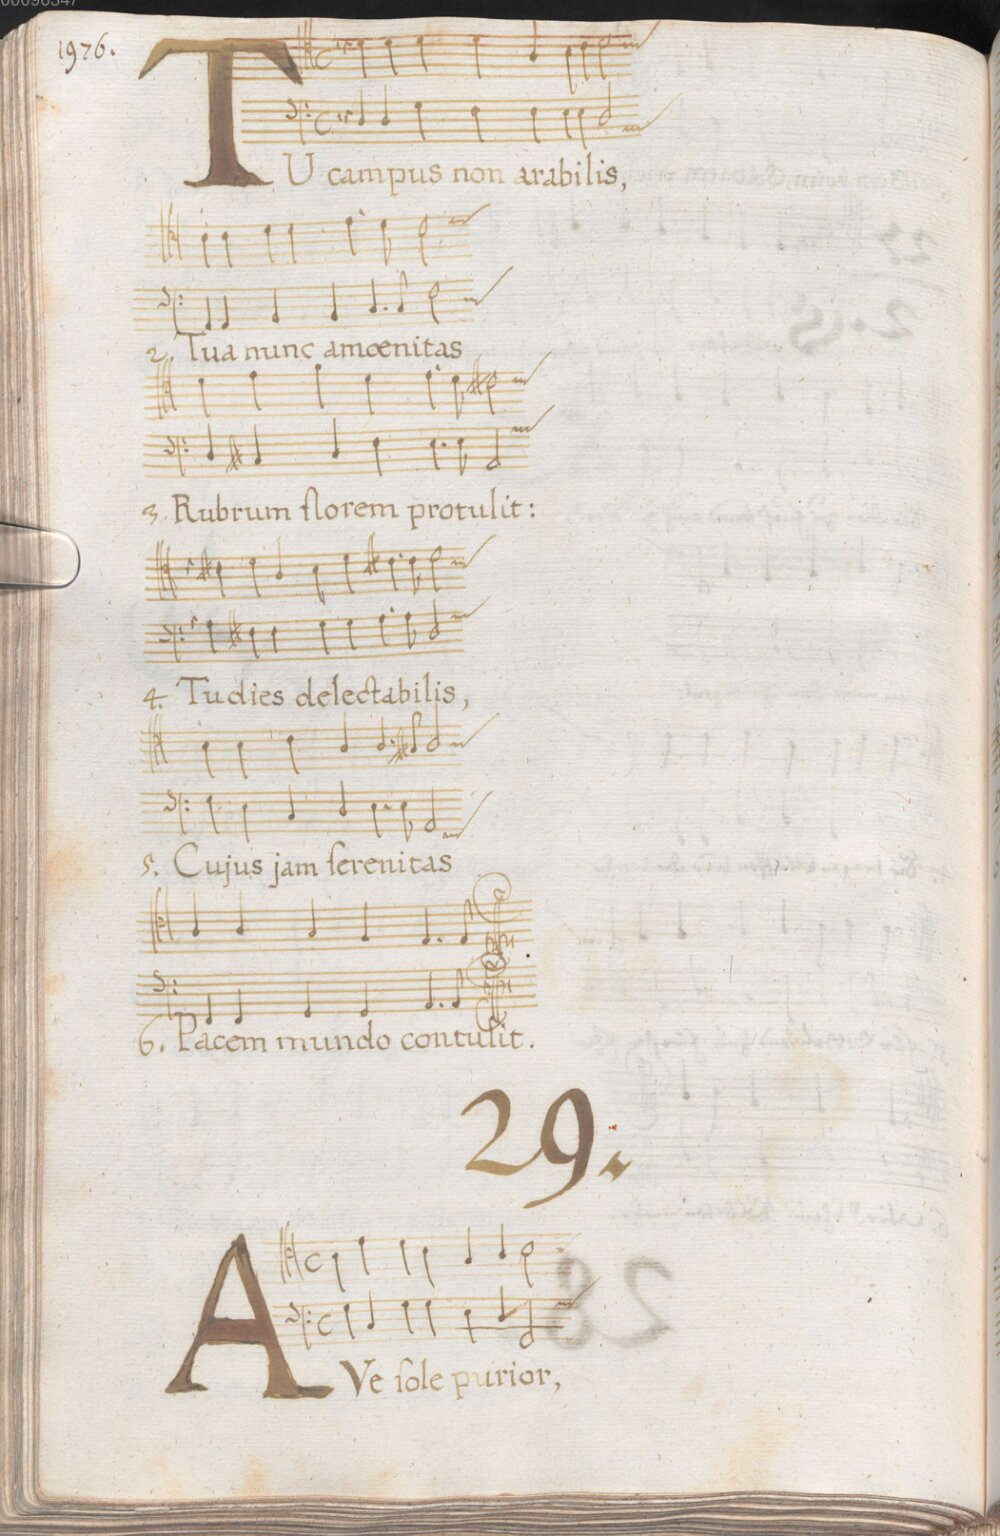 00096347
1976.
TU campus non arabilis,
2. Tua nunc amœnitas
3. Rubrum florem protulit:
4. Tu dies delectabilis,
5. Cujus jam ſerenitas
6. Pacem mundo contulit.
29.
AVe ſole purior,